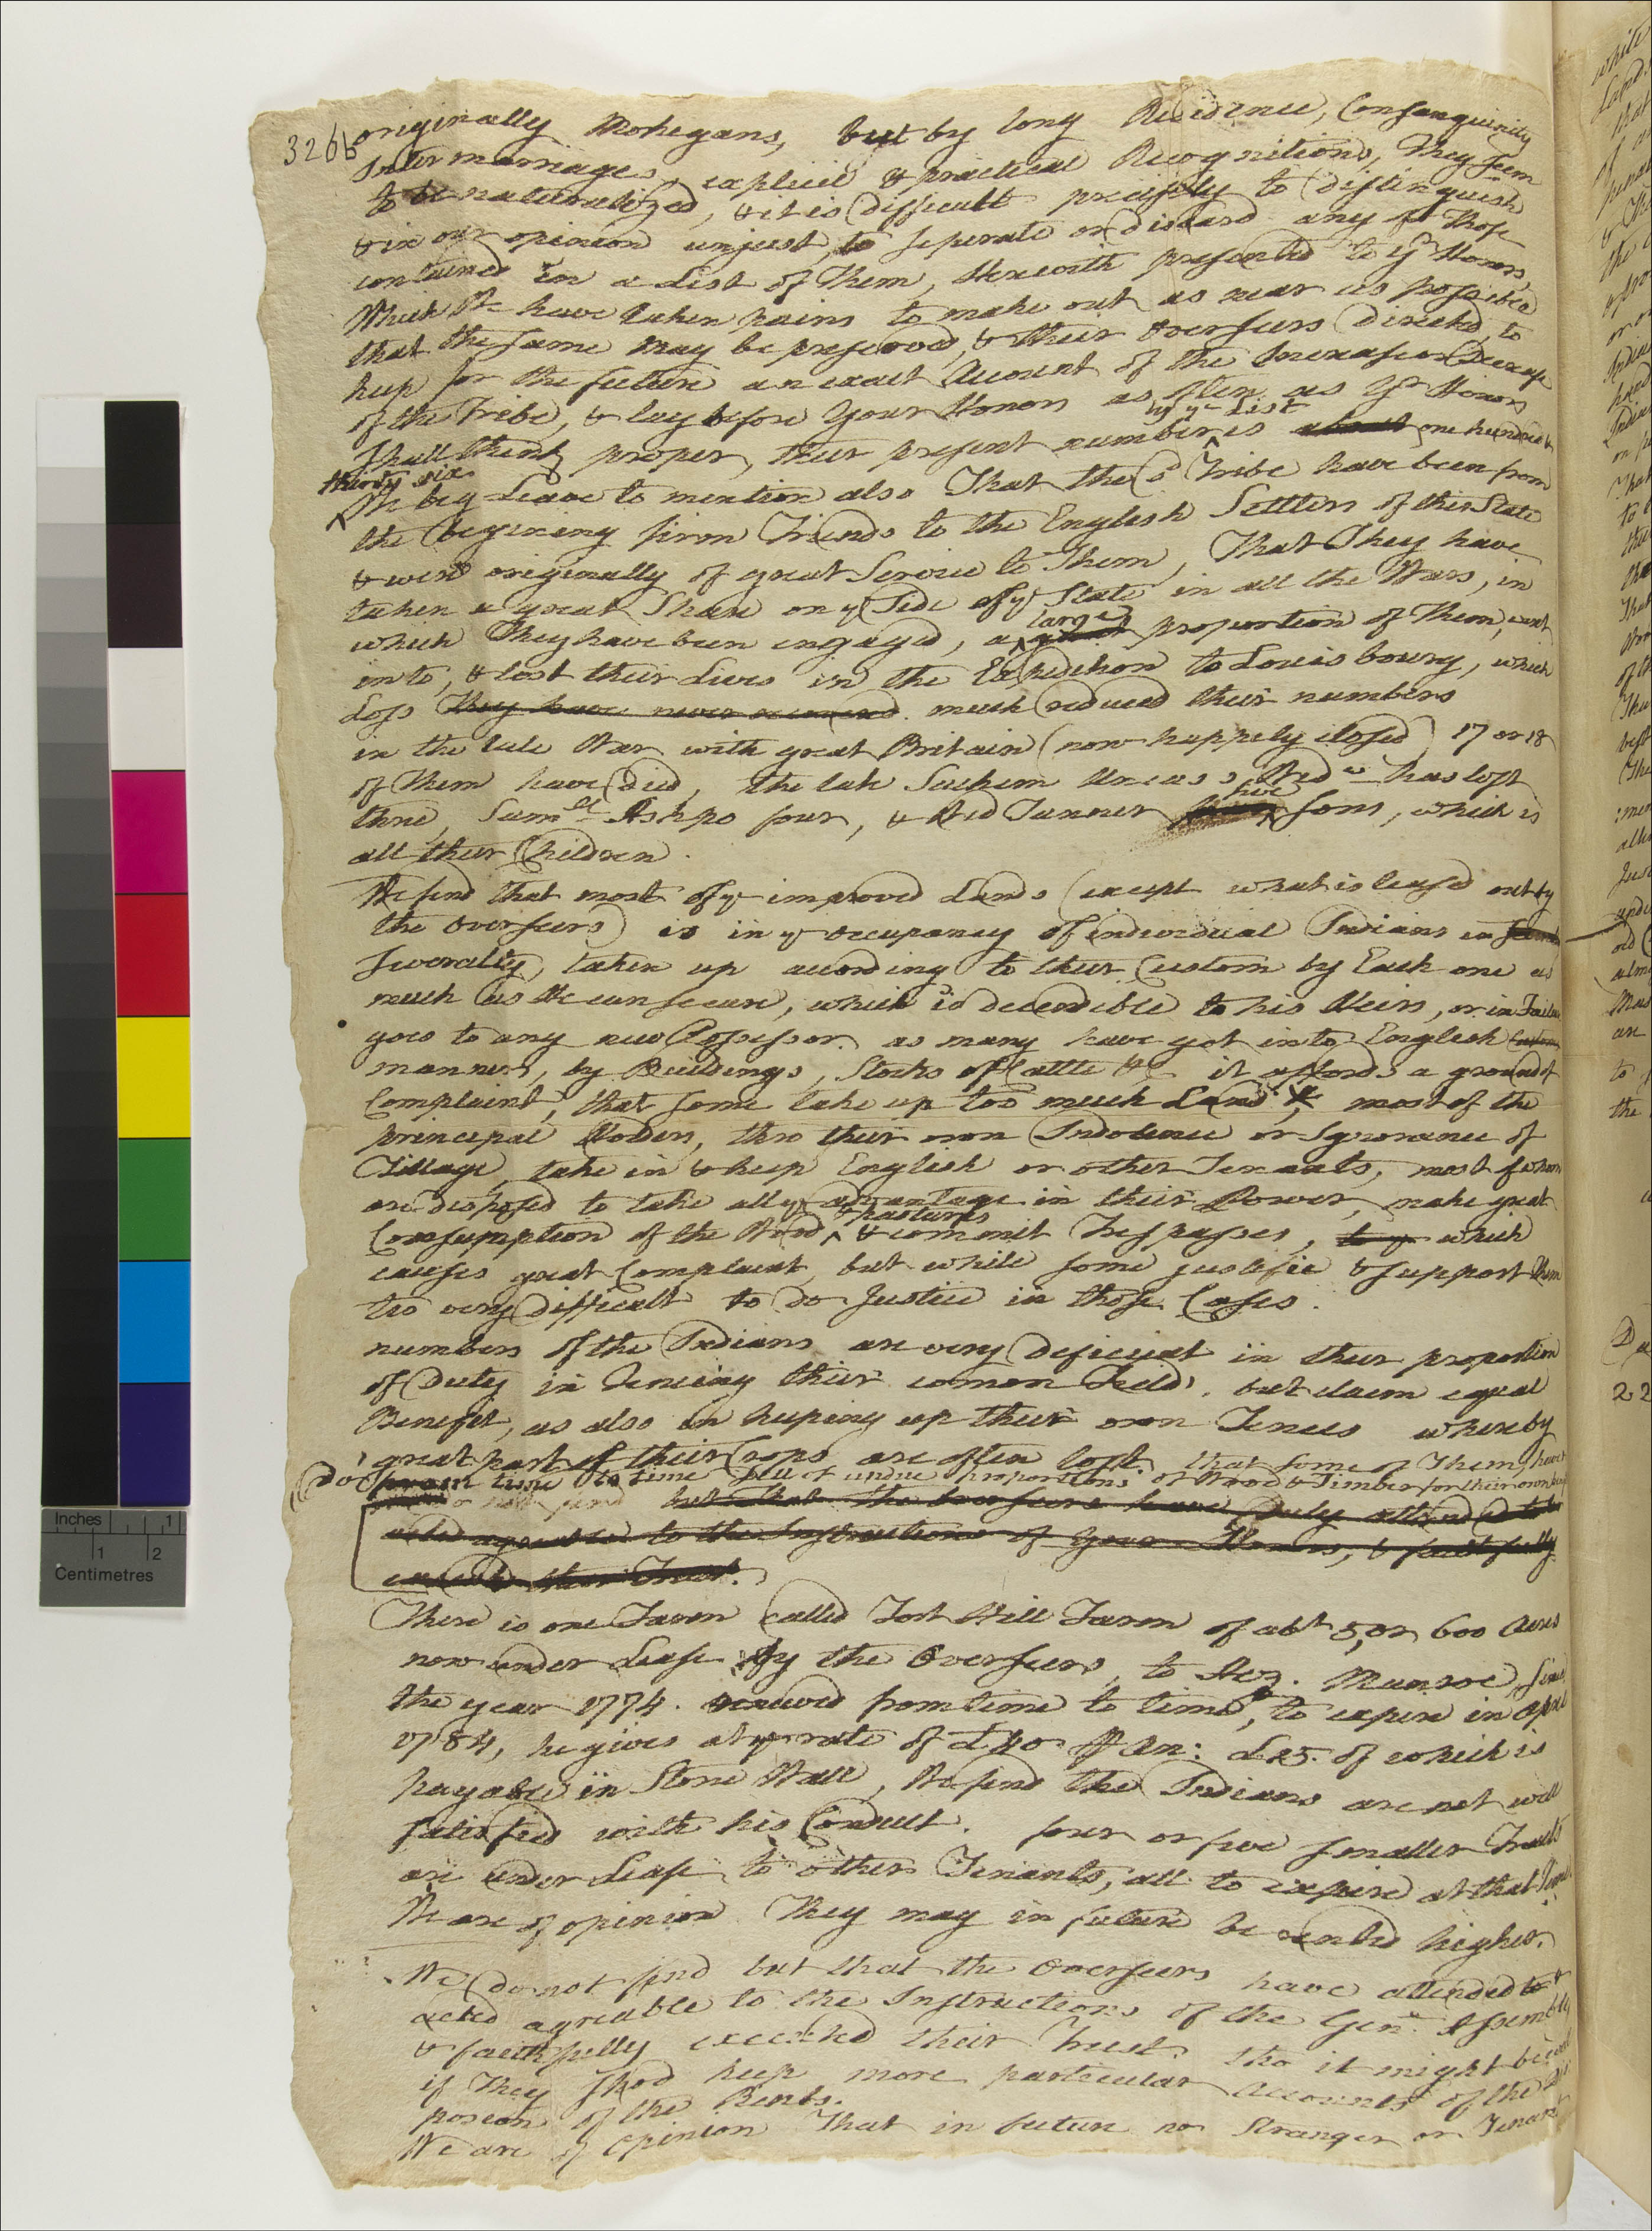 326b
originally Mohegans, but by long Residence, Consanguinity
Intermarriages, explicit & practical Recognitions, They seem
to be naturalized, & it is difficult precisely to distinguish
& in our opinion unjust, to seperate or discard any of Those
contained in a List of Them, Herewith presented to yr Honors,
Which We have taken pains to make out as near as possible
that the same may be preserved, & their Overseers directed, to
keep for the future an exact Account of the Increase or Decrease
of the Tribe, & lay before Your Honors as often as Yr Honors
by ye List
shall think proper, their present number is about one hundred &
thirty six
We beg Leave to mention also That the sd Tribe have been from
the begining firm Friends to the English Settlers of this State
& were originally of great Service to Them, That They have
taken a great Share on ye Side of ye State in all the Wars, in
large
which They have been engaged, a great proportion of Them, went
into, & lost their Lives in the Expedition to Louisbourg, which
Loss They have never recovered. much reduced their numbers
in the late War with great Britain (now happily closed) 17 or 18
of Them have died, the late Sachem Uncas's Wido has lost
five
three, Samll Ashpo four, & Wid Tanner sons, which is
all their Children.
We find that most of ye improved Lands (except what is leased out by
the Overseers) is in ye occupancy of individual Indians in
Severalty, taken up according to their Custom by Each one as
much as He can secure, which is decendible to his Heirs, or in Failure
goes to any new Possessor. as many have got into English Custom
manners, by Buildings, Stocks of Cattle &c it affords a ground of
Complaint, that some take up too much Land, most of the
principal Holders, thro their own Indolence or Ignorance of
Tillage, take in & keep English or other Tenants, most of whom
are disposed to take all ye advantage in their Power, make great
& pastures
Consumption of the Wood, & commit Trespasses, to ye which
causes great Complaint, but while some justifie & support Them
tis very difficult to do Justice in those Cases.
numbers of the Indians are very deficient in their proportion
of Duty in Fencing their common Field, but claim equal
Benefit, as also in keeping up their own Fences whereby
great part of their Crops are often lost, that some of Them, have
from time to time sell of undue proportions of Wood & Timber for their own
Do not find but that the Overseers have Duly attended to &
acted agreable to the Instructions of Your Honors, & faithfully
executed their Trust.
There is one Farm called Fort Hill Farm of abt 5, or 600 Acres
now under Lease by the Overseers, to Munroe, since
the year 1774. renewed from time to time, to expire in April
1784, he gives at ye rate of £40 P An: £25. of which is
payable in Stone Wall, We find the Indians are not well
satisfied with his Conduct. four or five smaller Tracts
are under Lease to other Tenants, all to expire at that Time.
We are of opinion They may in future be rented higher.
We do not find but that the Overseers have attended to &
acted agreable to the Instructions of the Genl Assembly
& faithfully executed their Trust. tho it might be well
if They shod keep more particular Accounts of the Dis
position of the Rents.
We are of Opinion That in future no Stranger or Tenant
Inches
1
1
2
Centimetres